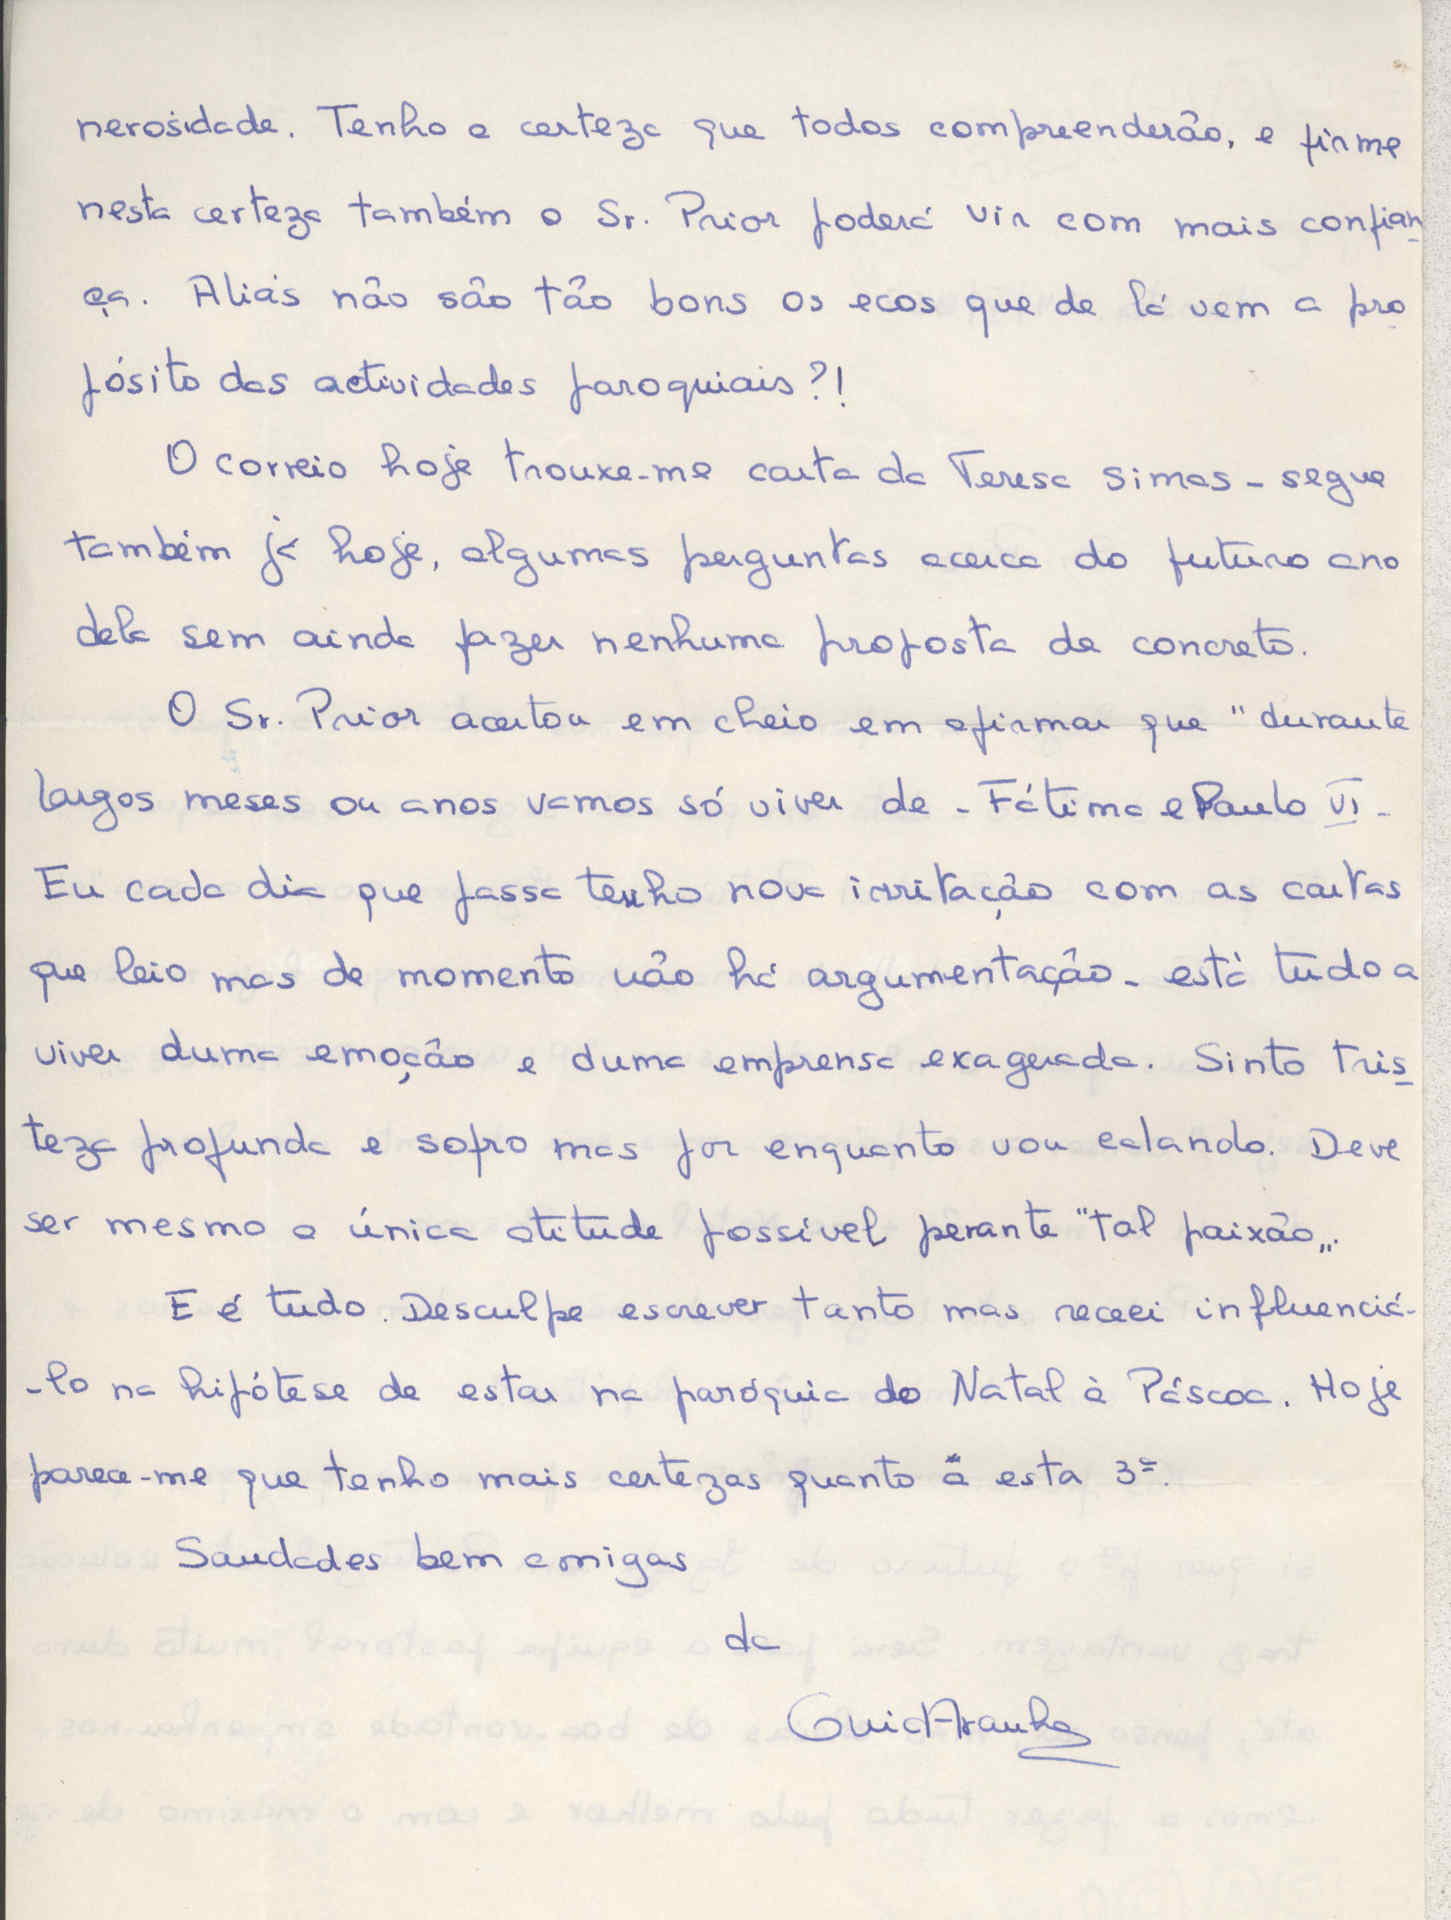 nerosidade. Tenho a certeza que todos compreenderão, e firme
nesta certeza também o Sr. Prior poderá vir com mais confian-
ça. Aliás não são tão bons os ecos que de lá vem a pro
pósito das actividades paroquiais?!
O correio hoje trouxe-me carta da Teresa Simas - segue
também já hoje, algumas perguntas acerca do futuro ano
dela sem ainda fazer nenhuma proposta de concreto.
O Sr. Prior acertou em cheio em afirmar que "durante
largos meses ou anos vamos só viver de - Fátima e Paulo VI -
Eu cada dia que passa tenho nova irritação com as cartas
que leio mas de momento não há argumentação - está tudo a
viver duma emoção e duma emprensa exagerada. Sinto tris-
teza profunda e sofro mas por enquanto vou calando. Deve
ser mesmo a única atitude possível perante "tal paixão".
E é tudo. Desculpe escrever tanto mas receei influenciá-
-lo na hipótese de estar na paróquia do Natal à Páscoa. Hoje
parece-me que tenho mais certezas quanto a esta 3ª.
Saudades bem amigas
da
Guida Aranha